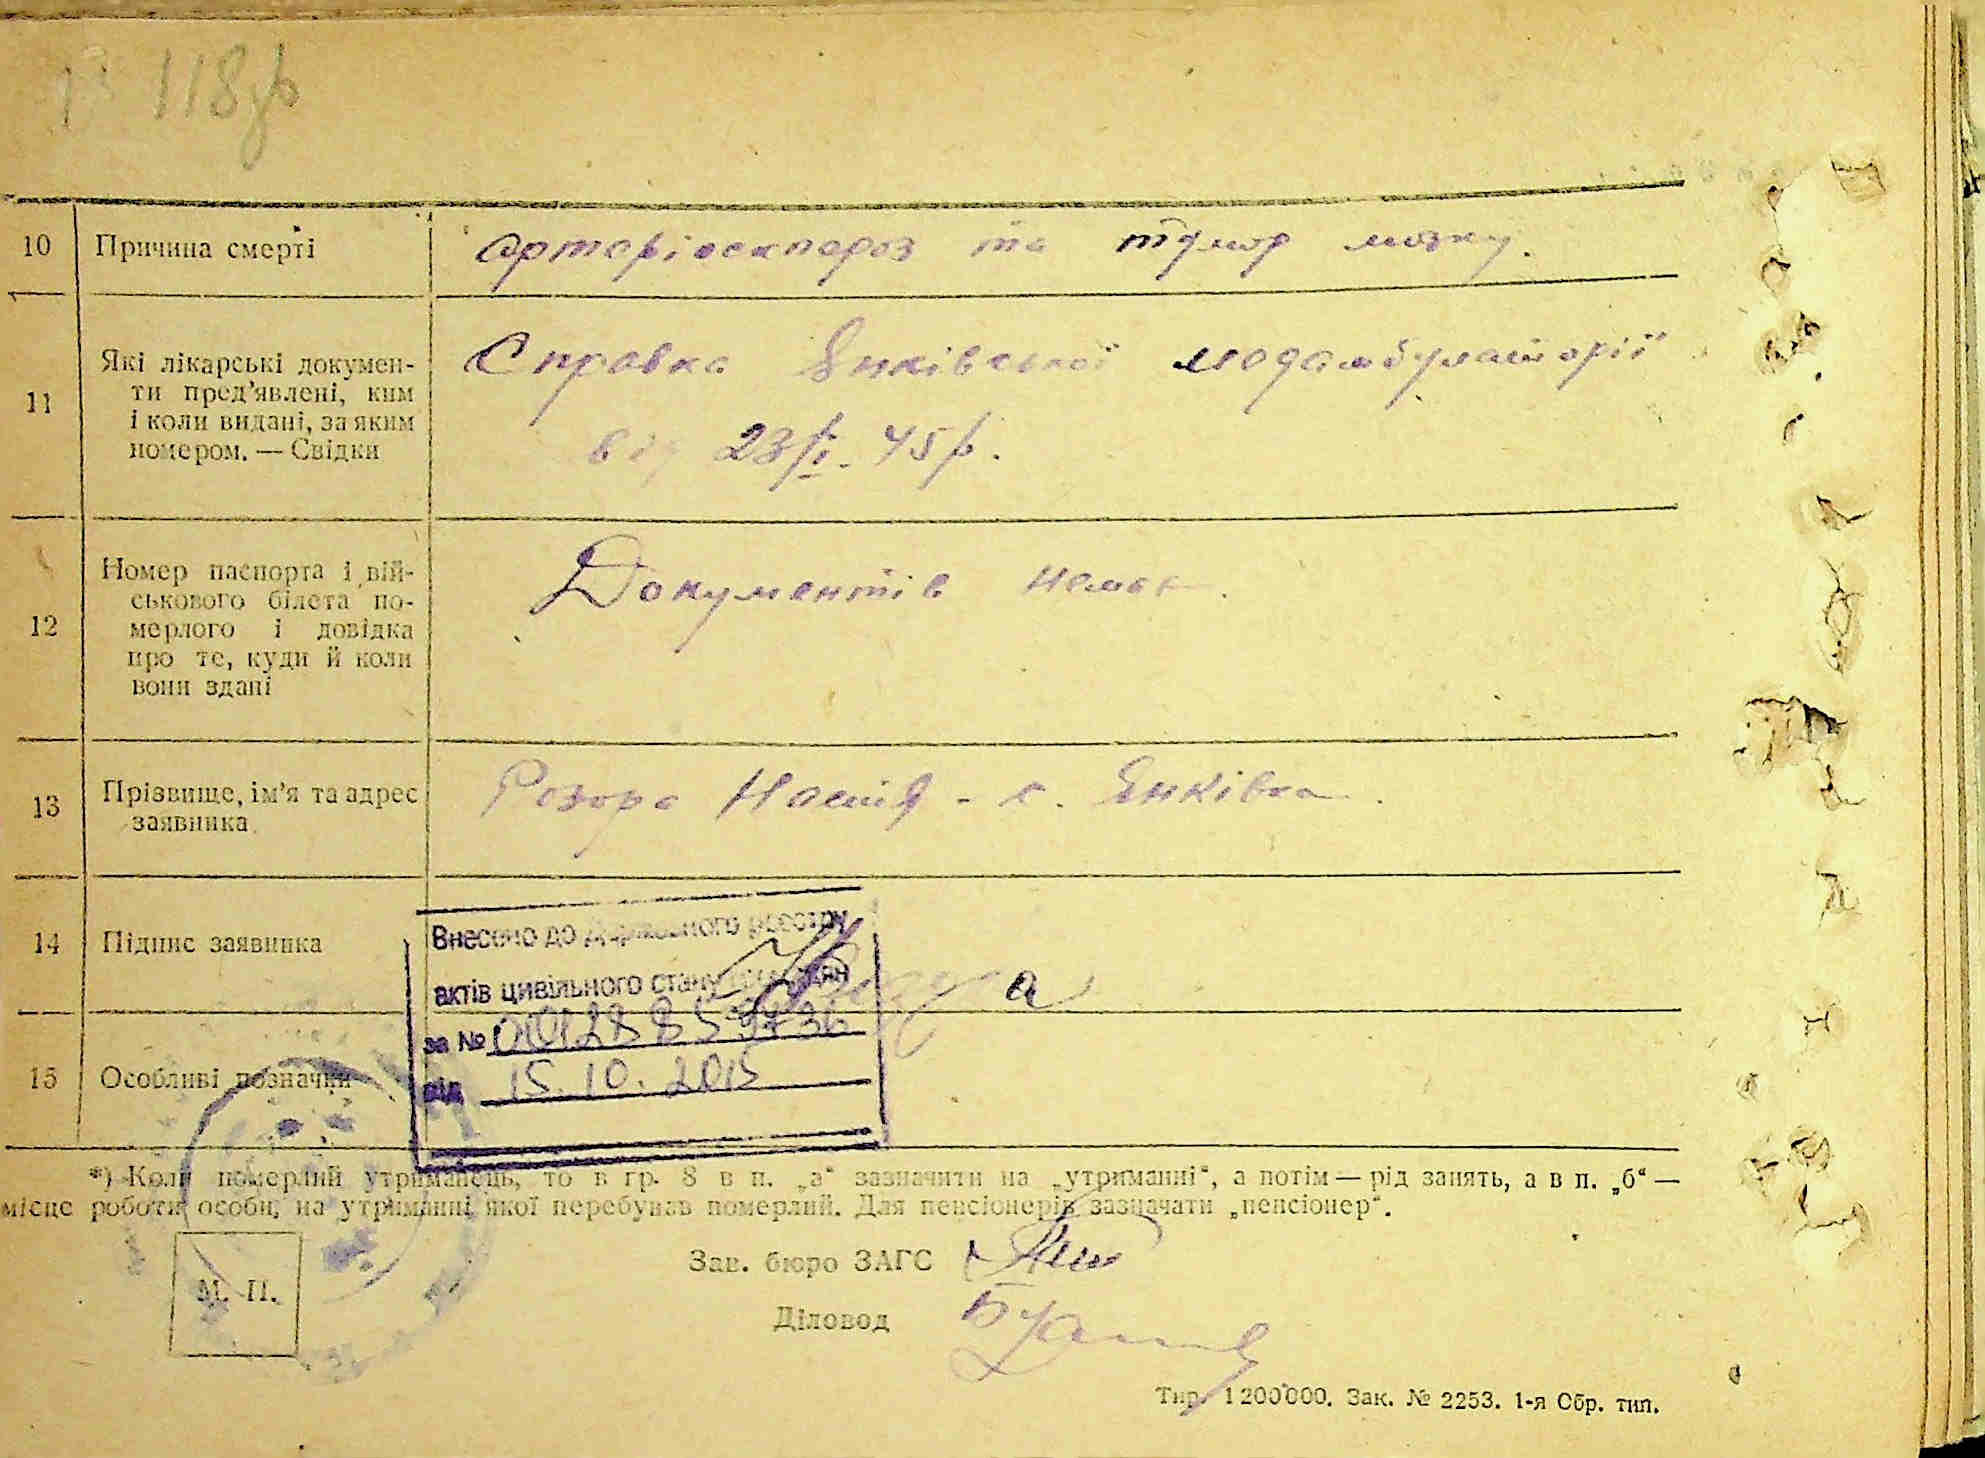 118зв
10 Причина смерті Артеріосклероз та тумор мозку.
11 Які лікарські докумен-
ти пред'явлені, ким
і коли видані, за яким
номером. — Свідки
Справка Янківської медамбулаторії
від 23/I. 45р.
12 Номер паспорта і вій-
ськового білета по-
мерлого і довідка
про те, куди й коли
вони здані
Документів немає.
13 Прізвище, ім'я та адрес
заявника
Розора Настя - с. Янківка.
14 Підпис заявника
15 Особливі позначки
Внесено до Державного реєстру
актів цивільного стану громадян
за № 00128859736
від 15.10.2015
*) Коли померлий утриманець, то в гр. 8 в п. „а“ зазначити на „утриманні“, а потім — рід занять, а в п. „б“ —
місце роботи особи, на утриманні якої перебував померлий. Для пенсіонерів зазначати „пенсіонер“.
М. П.
Зав. бюро ЗАГС
Діловод
Тир. 1 200 000. Зак. № 2253. 1-я Обр. тип.